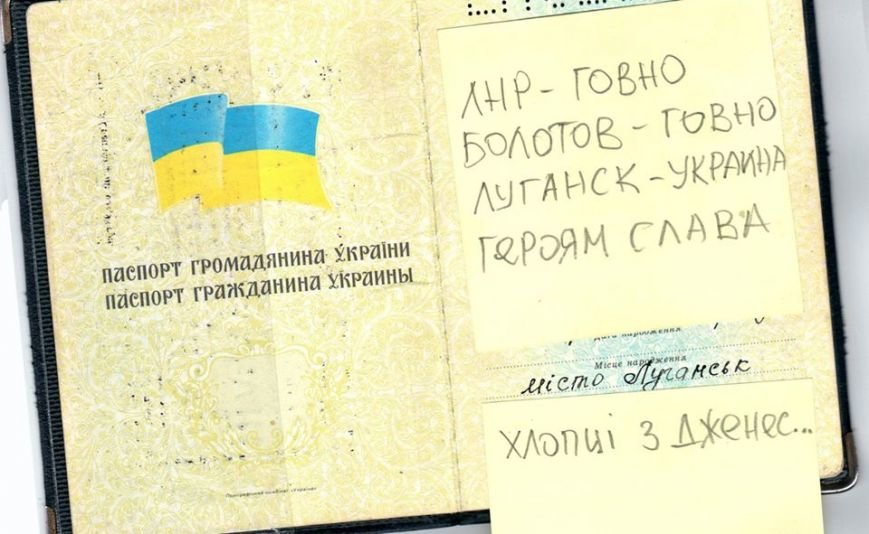 ПАСПОРТ ГРОМАДЯНИНА УКРАЇНИ
ПАСПОРТ ГРАЖДАНИНА УКРАИНЫ
ЛНР - ГОВНО
БОЛОТОВ - ГОВНО
ЛУГАНСК - УКРАИНА
ГЕРОЯМ СЛАВА
Дата народження
Місце народження
місто Луганськ
ХЛОПЦІ З ДЖЕНЕС...